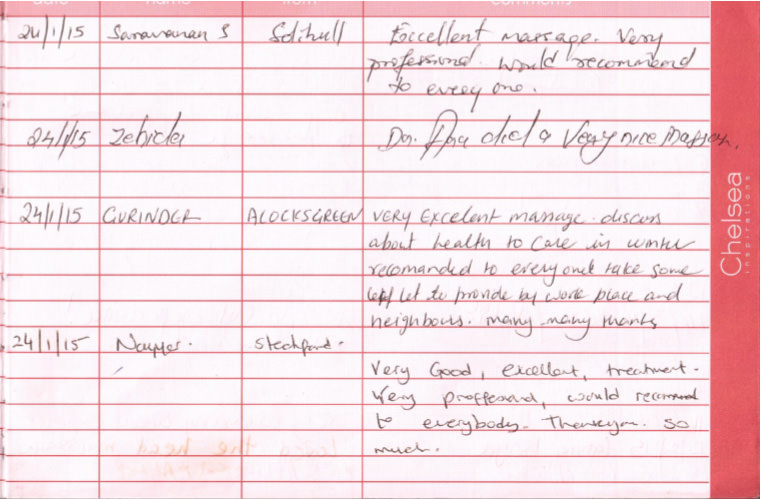 date name from comments
24/1/15 Saravanan S Solihull Excellent massage. Very
professional. would recommend
to every one.
24/1/15 Zehida Dr. did a Very nice
24/1/15 GURINDER ACOCKSGREEN VERY Excelent massage. discuss
about health to care in winter
recomanded to every one take some
let to provide by work place and
neighbours. many many thanks
24/1/15 Nayyer. Stechford.
Very Good, excellent, treatment.
Very proffesional, would recommend
to everybody. Thankyou. so
much.
Chelsea
inspirations